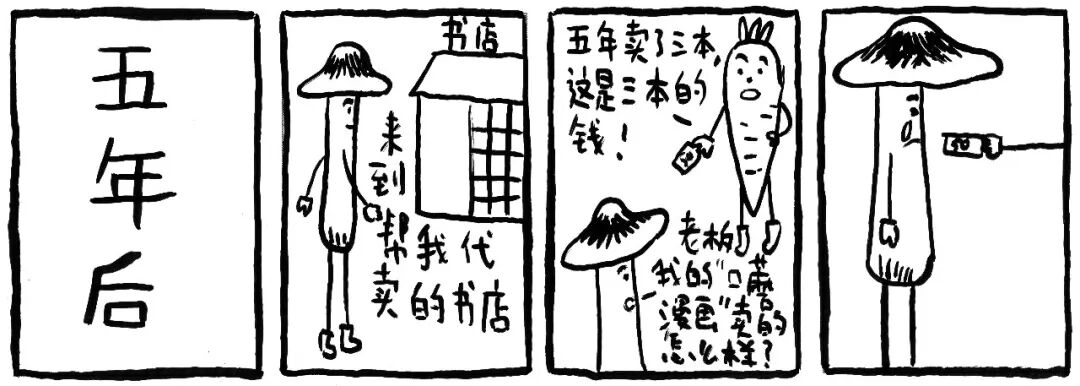 五年后
书店
来到帮我代
卖的书店
五年卖了三本,
这是三本的
钱!
50
老板
我的"口蘑
漫画"卖的
怎么样?
50